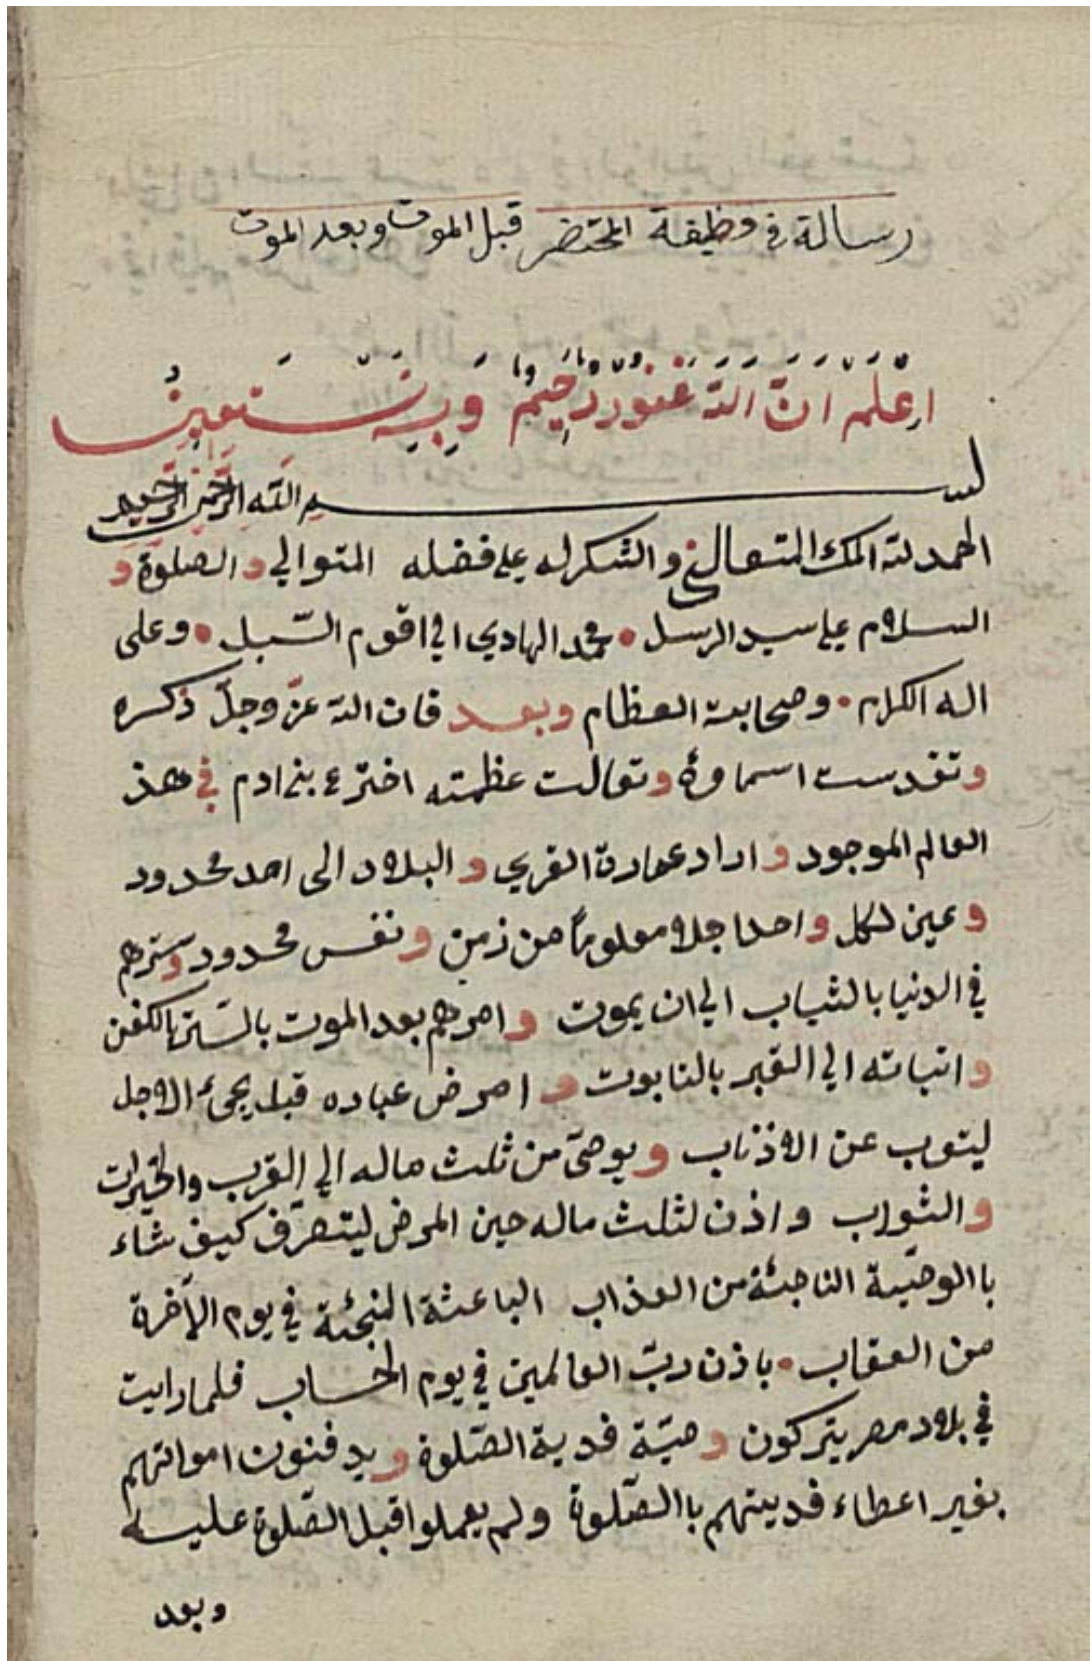 رسالة في وظيفة المحتضر قبل الموت وبعد الموت
اِعْلَمْ اَنَّ اللّٰهَ غَفُورٌ رَحِيمٌ وَبِهِ نَسْتَعِينُ
بسم الله الرحمن الرحيم
الحمد لله الملك المتعالي و الشكر له على فضله المتوالي و الصلوة و
السلام على سيد الرسل • محمد الهادي الى اقوم السّبل • وعلى
اله الكرام • وصحابته العظام وبعد فان الله عزّ وجلّ ذكره
وتقدست اسماؤه وتعالت عظمته اخترع بني ادم في هذ
العالم الموجود و اراد عمارة القري و البلاد الى امد محدود
و عين لكل واحد اجلا معلوماً من زمن و نفس محدود وسترهم
في الدنيا بالثياب الي ان يموت و امرهم بعد الموت بالستر بالكفن
و اتيانه الي القبر بالتابوت و امرض عباده قبل يجئ الاجل
ليتوب عن الاذناب و يوصى من ثلث ماله الي القرب والخيرات
و الثواب و اذن لثلث ماله حين المرض ليتصرّف كيف شاء
باالوصّية الناجئة من العذاب الباعثة المنجئة في يوم الآخرة
من العقاب • باذن ربّ العالمين في يوم الحساب فلما رايت
في بلاد مصر يتركون وصيّة فدية الصّلوة ويدفنون امواتهم
بغير اعطاء فديتهم باالصّلوة ولم يعملوا قبل الصّلوة عليه
وبعد